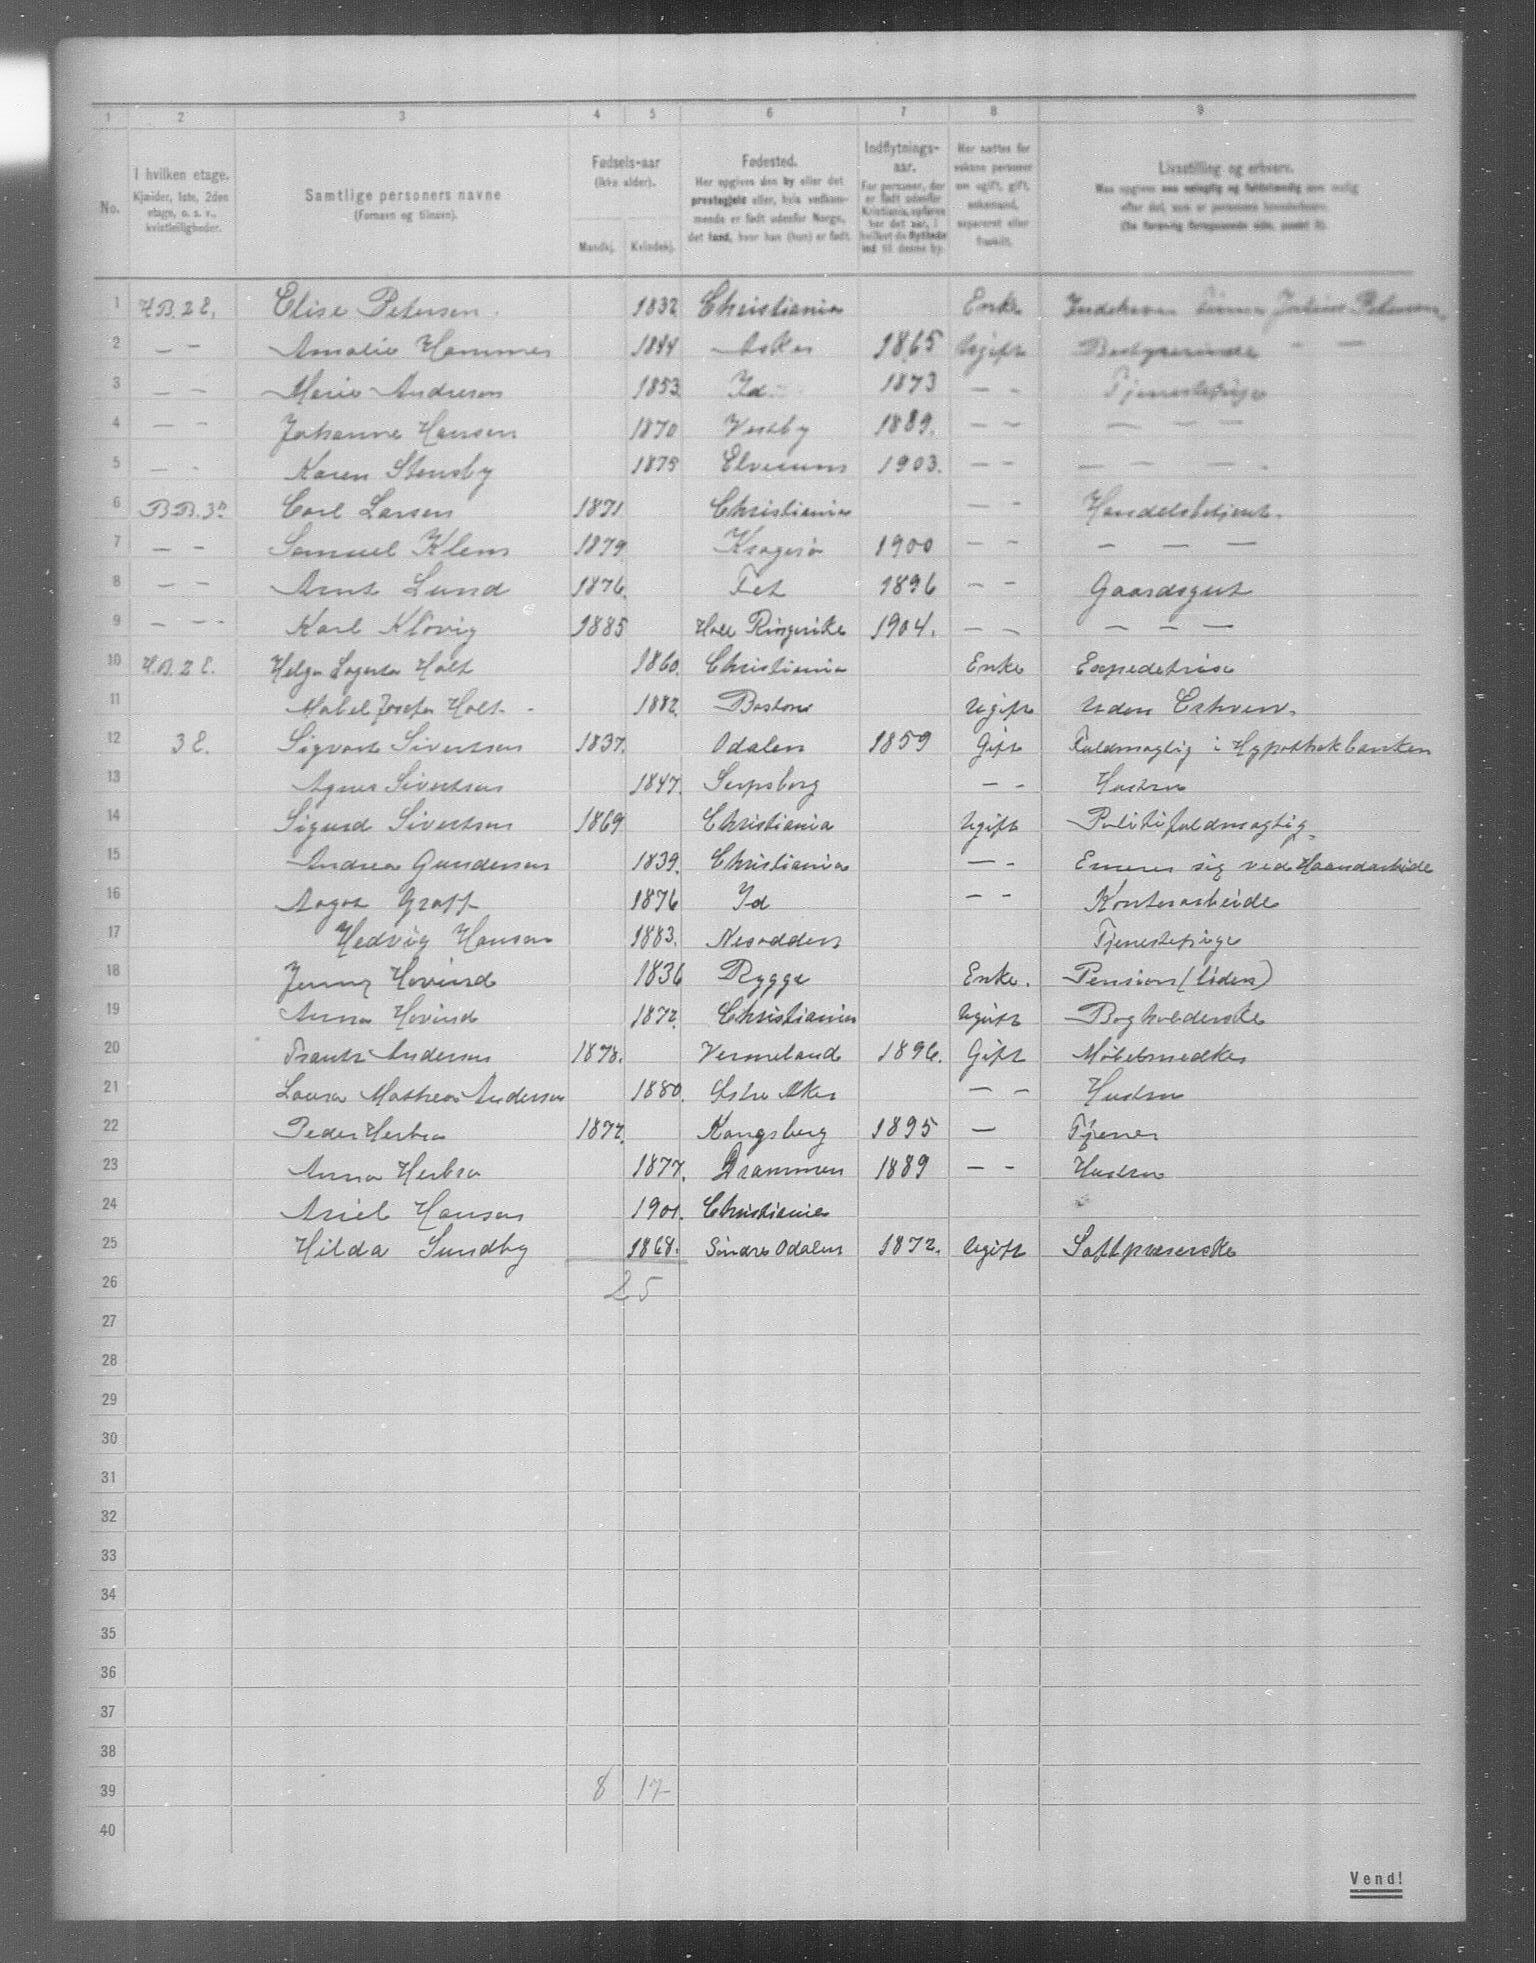 1 2 3 4 5 6 7 8 9
No.
I hvilken etage.
Kjælder, 1ste, 2den etage, o. s. v., kvistleiligheder.
Samtlige personers navne
(Fornavn og tilnavn).
Fødsels-aar
(ikke alder).
Mandkj. Kvindekj.
Fødested.
Her opgives den by eller det
prestegjeld eller, hvis vedkom-
mende er født udenfor Norge,
det land, hvor han (hun) er født.
Indflytnings-
aar.
For personer, der
er født udenfor
Kristiania, opføres
her det aar, i
hvilket de flyttede
ind til denne by.
Her sættes for
voksne personer
om ugift, gift,
enkemand,
separeret eller
fraskilt.
Livsstilling og erhverv.
Maa opgives saa nøiagtig og fuldstændig som mulig
1 H.B. 2 E. Elise Petersen. 1832 Christiania Enke Indehaver Firma Julius Petersen
2 — — Amalie Hammer 1844 Asker 1865 Ugift Bestyrerinde — —
3 — — Marie Andresen 1853. Id 1873 — — Tjenestepige
4 — — Johanne Hansen 1870 Vestby 1889. — — — — —
5 — - Karen Stensby 1875 Elverum 1903. — — — — — .
6 B.B. 3die Carl Larsen 1871 Christiania — - Handelsbetjent.
7 — — Samuel Klem 1879 Kragerø 1900 — — — — —
8 — — Arnt Lund 1876 Fet 1896 — — Gaardsgut
9 — — - Karl Kløvig 1885 Hole Ringerike 1904. — — — — —
10 H.B. 2 E. Helga Holt 1860. Christiania Enke Expeditrise
11 Mabel Josefa Holt - 1882. Boston Ugift Uden Erhverv.
12 3 E. Sigvart Sivertsen 1837. Odalen 1859 Gift Fuldmægtig i Hypothekbanken
13 Agnes Sivertsen 1847. Sarpsborg — - Hustru
14 Sigurd Sivertsen 1869 Christiania Ugift Politifuldmægtig.
15 Andrea Gundersen 1839. Christiania — - Ernærer sig ved Haandarbeide
16 Aagot Graff 1876 Id — — Kontorarbeide
17 Hedvig Hansen 1883. Nesodden Tjenestepige
18 Jenny Hovind 1836 Rygge Enke. Pension (liden)
19 Anna Hovind 1872. Christiania Ugift Bogholderske
20 Frantz Andersen 1878. Vermeland 1896. Gift Møbelsnedker
21 Laura Mathea Andersen 1880. Østre Aker — — Hustru
22 Peder Herbra 1872. Kongsberg 1895 — Tjener
23 Anna Herbra 1877. Drammen 1889 — — Hustru
24 Ariel Hansen 1901. Christiania
25 Hilda Sundby 1868. Søndre Odalen 1872. Ugift Saftpresserske
26 25
27
28
29
30
31
32
33
34
35
36
37
38
39 8 17
40
Vend!